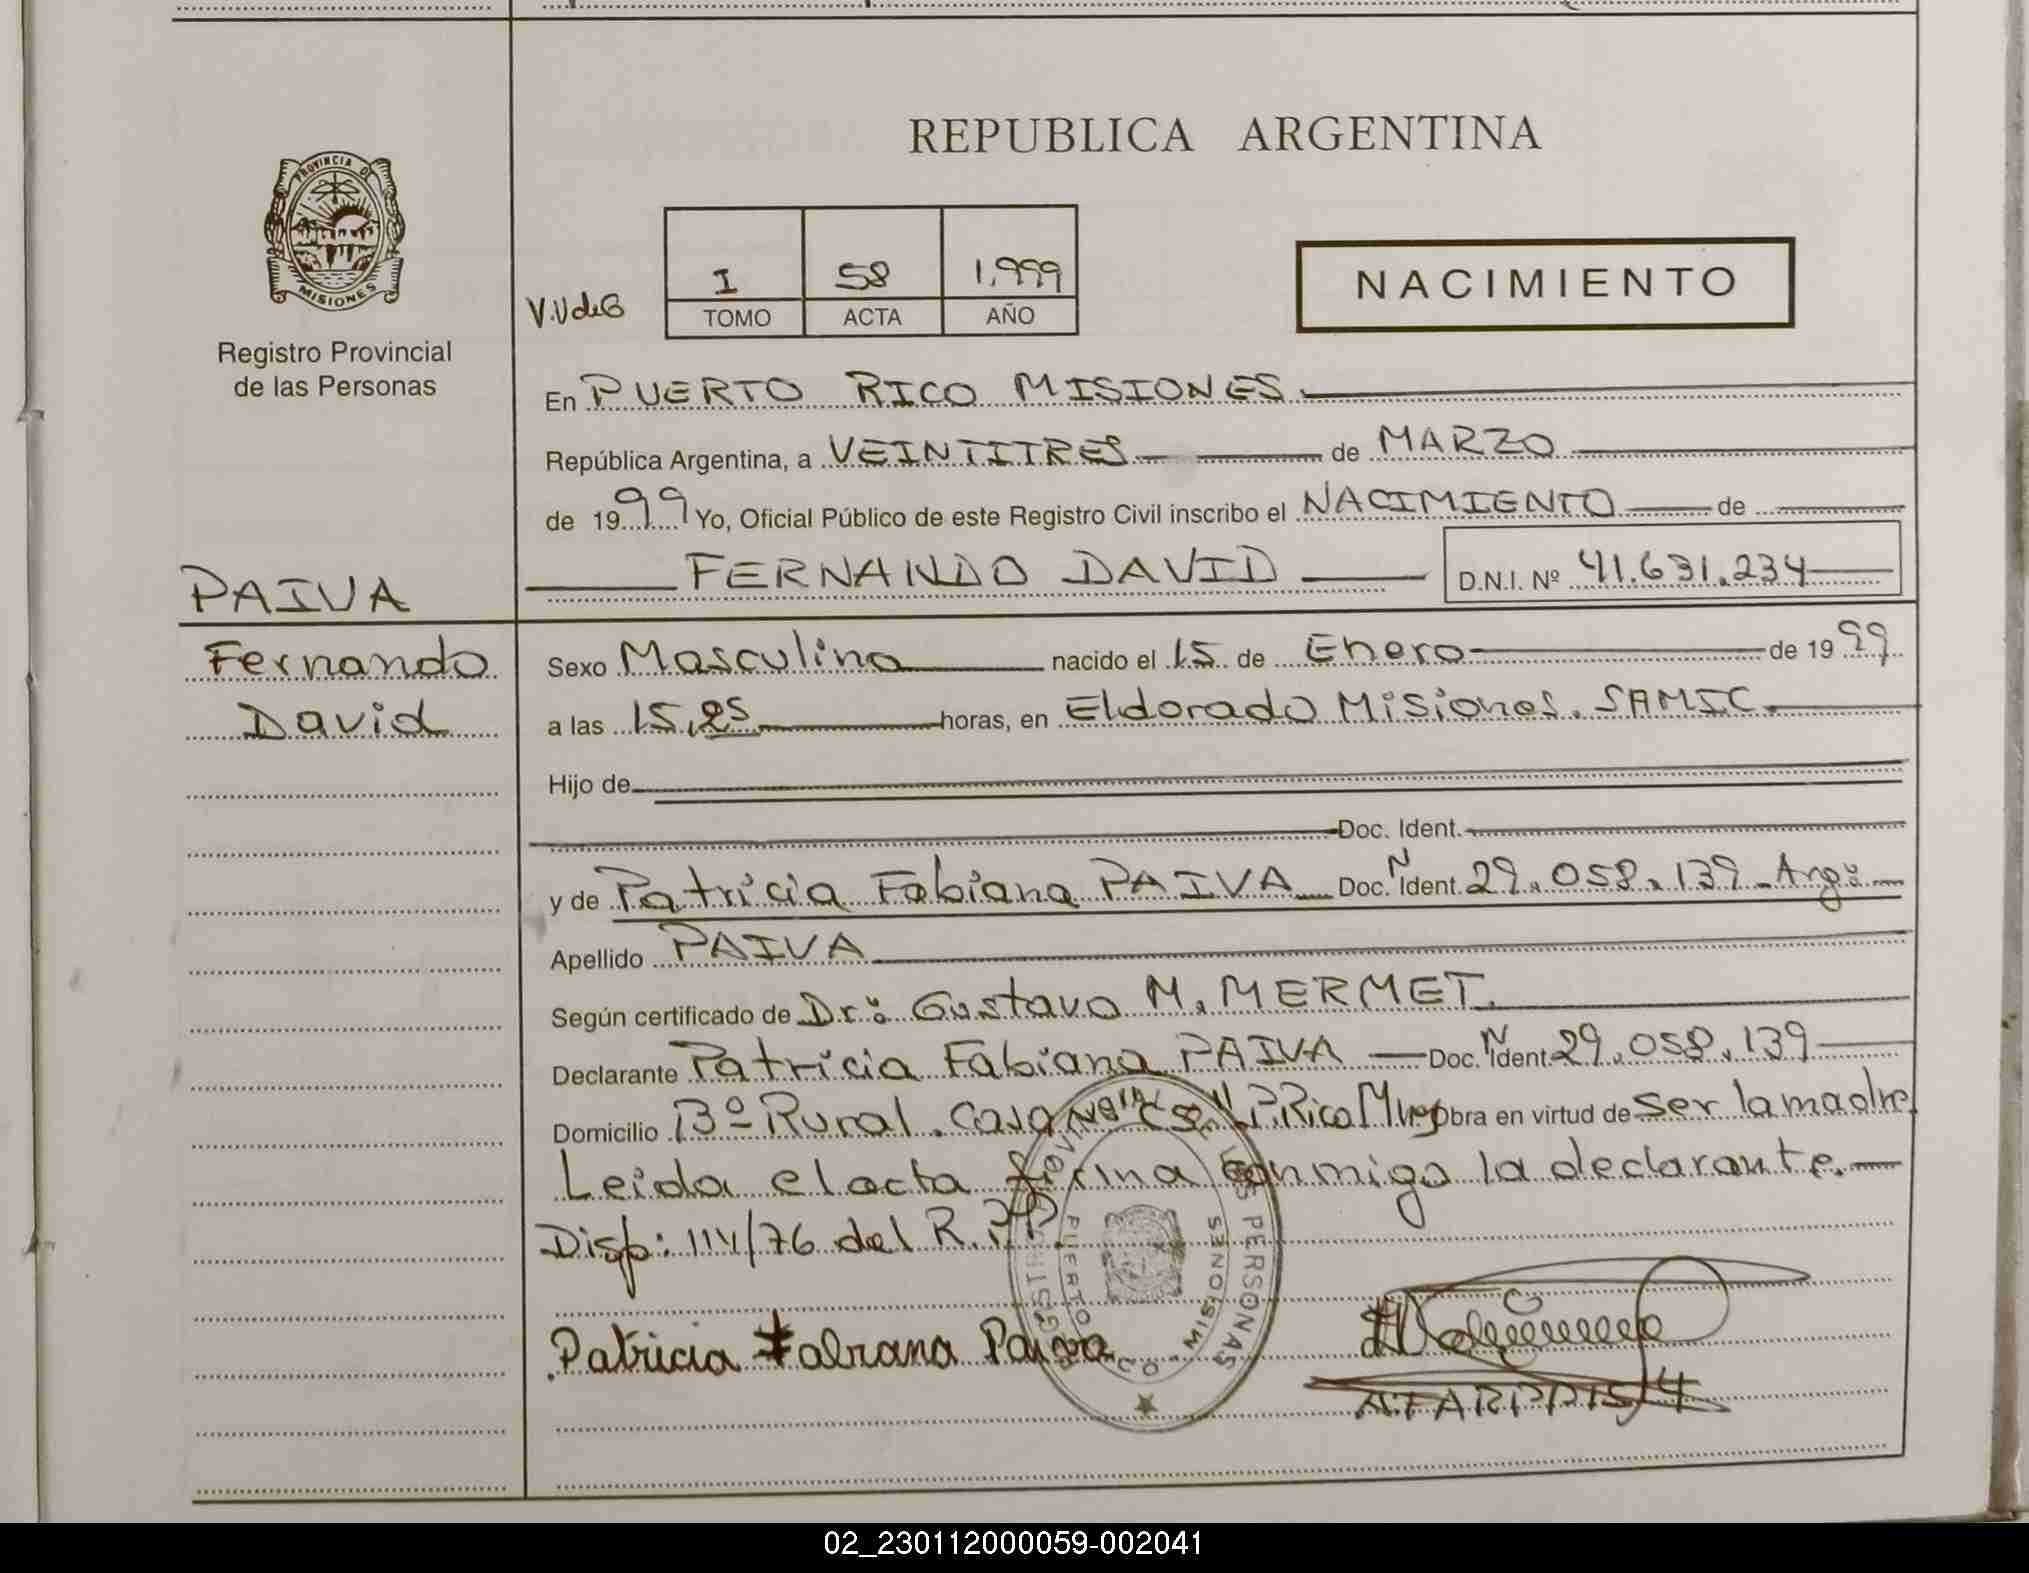 REPUBLICA ARGENTINA
PROVINCIA DE
MISIONES
Registro Provincial
de las Personas
V.V de G
I 58 1.999
TOMO ACTA AÑO
NACIMIENTO
En PUERTO RICO MISIONES
República Argentina, a VEINTITRES de MARZO
de 1999 Yo, Oficial Público de este Registro Civil inscribo el NACIMIENTO de
FERNANDO DAVID D.N.I. Nº 41.631.234
PAIVA
Fernando
David
Sexo Masculino nacido el 15 de Enero de 1999
a las 15,25 horas, en Eldorado Misiones. SAMIC.
Hijo de
Doc. Ident.
y de Patricia Fabiana PAIVA Doc. N Ident. 29.058.139 Arg.
Apellido PAIVA
Según certificado de Dr: Gustavo M. MERMET.
Declarante Patricia Fabiana PAIVA Doc. N Ident. 29.058.139
Domicilio Bº Rural. Casa P. Rico obra en virtud de ser la madre
Leida el acta firma conmigo la declarante.
Disp: 114/76 del R.P.P.
Patricia Fabiana Paiva
PERSONAS
PUERTO
MISIONES
02_230112000059-002041